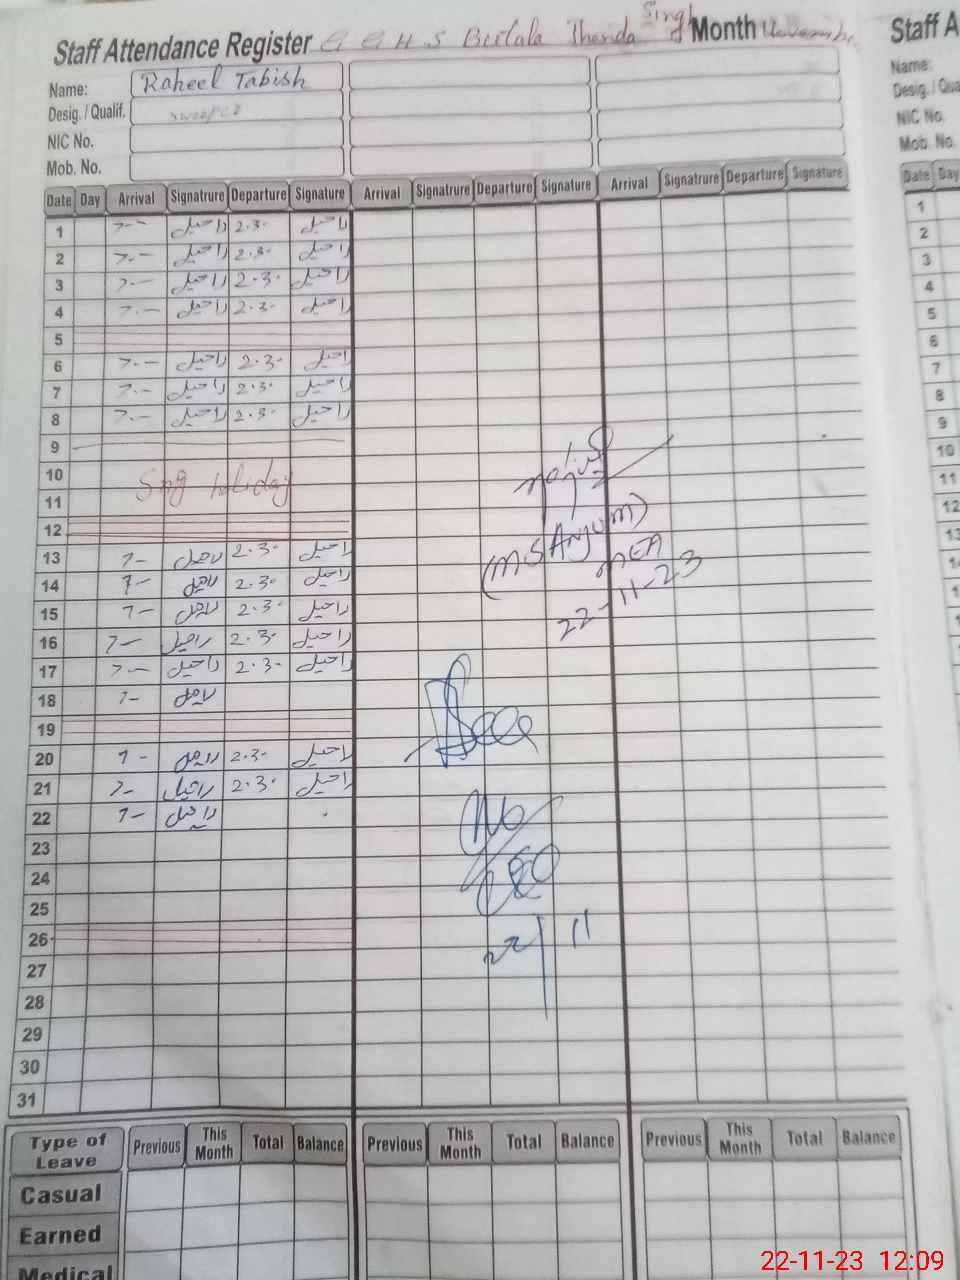 Staff Attendance Register G G H S Jhanda Singh Month November Staff A
Name: Raheel Tabish Name:
Desig. / Qualif. sweeper Desig. / Qua
NIC No. NIC No.
Mob. No. Mob. No.
Date Day Arrival Signatrure Departure Signature Arrival Signatrure Departure Signature Arrival Signatrure Departure Signature Date Day
1 7-- راحیل 2.30 راحیل 1
2 7.- راحیل 2.30 راحیل 2
3 7-- راحیل 2.30 راحیل 3
4 7.- راحیل 2.30 راحیل 4
5 5
6 7.- راحیل 2.30 راحیل 6
7 7.- راحیل 2.30 راحیل 7
8 7.- راحیل 2.30 راحیل 8
9 9
10 Smg holiday 10
11 11
12 12
13 7- راحیل 2.30 راحیل
14 7- راحیل 2.30 راحیل
15 7- راحیل 2.30 راحیل
16 7- راحیل 2.30 راحیل
17 7.- راحیل 2.30 راحیل
18 7- راحیل
19
20 7- راحیل 2.30 راحیل
21 7- راحیل 2.30 راحیل
22 7- راحیل
23
24
25
26
27
28
29
30
31
(M.S Anjum)
MEA
22-11-23
22/11
Type of Leave Previous This Month Total Balance Previous This Month Total Balance Previous This Month Total Balance
Casual
Earned
Medical
22-11-23 12:09